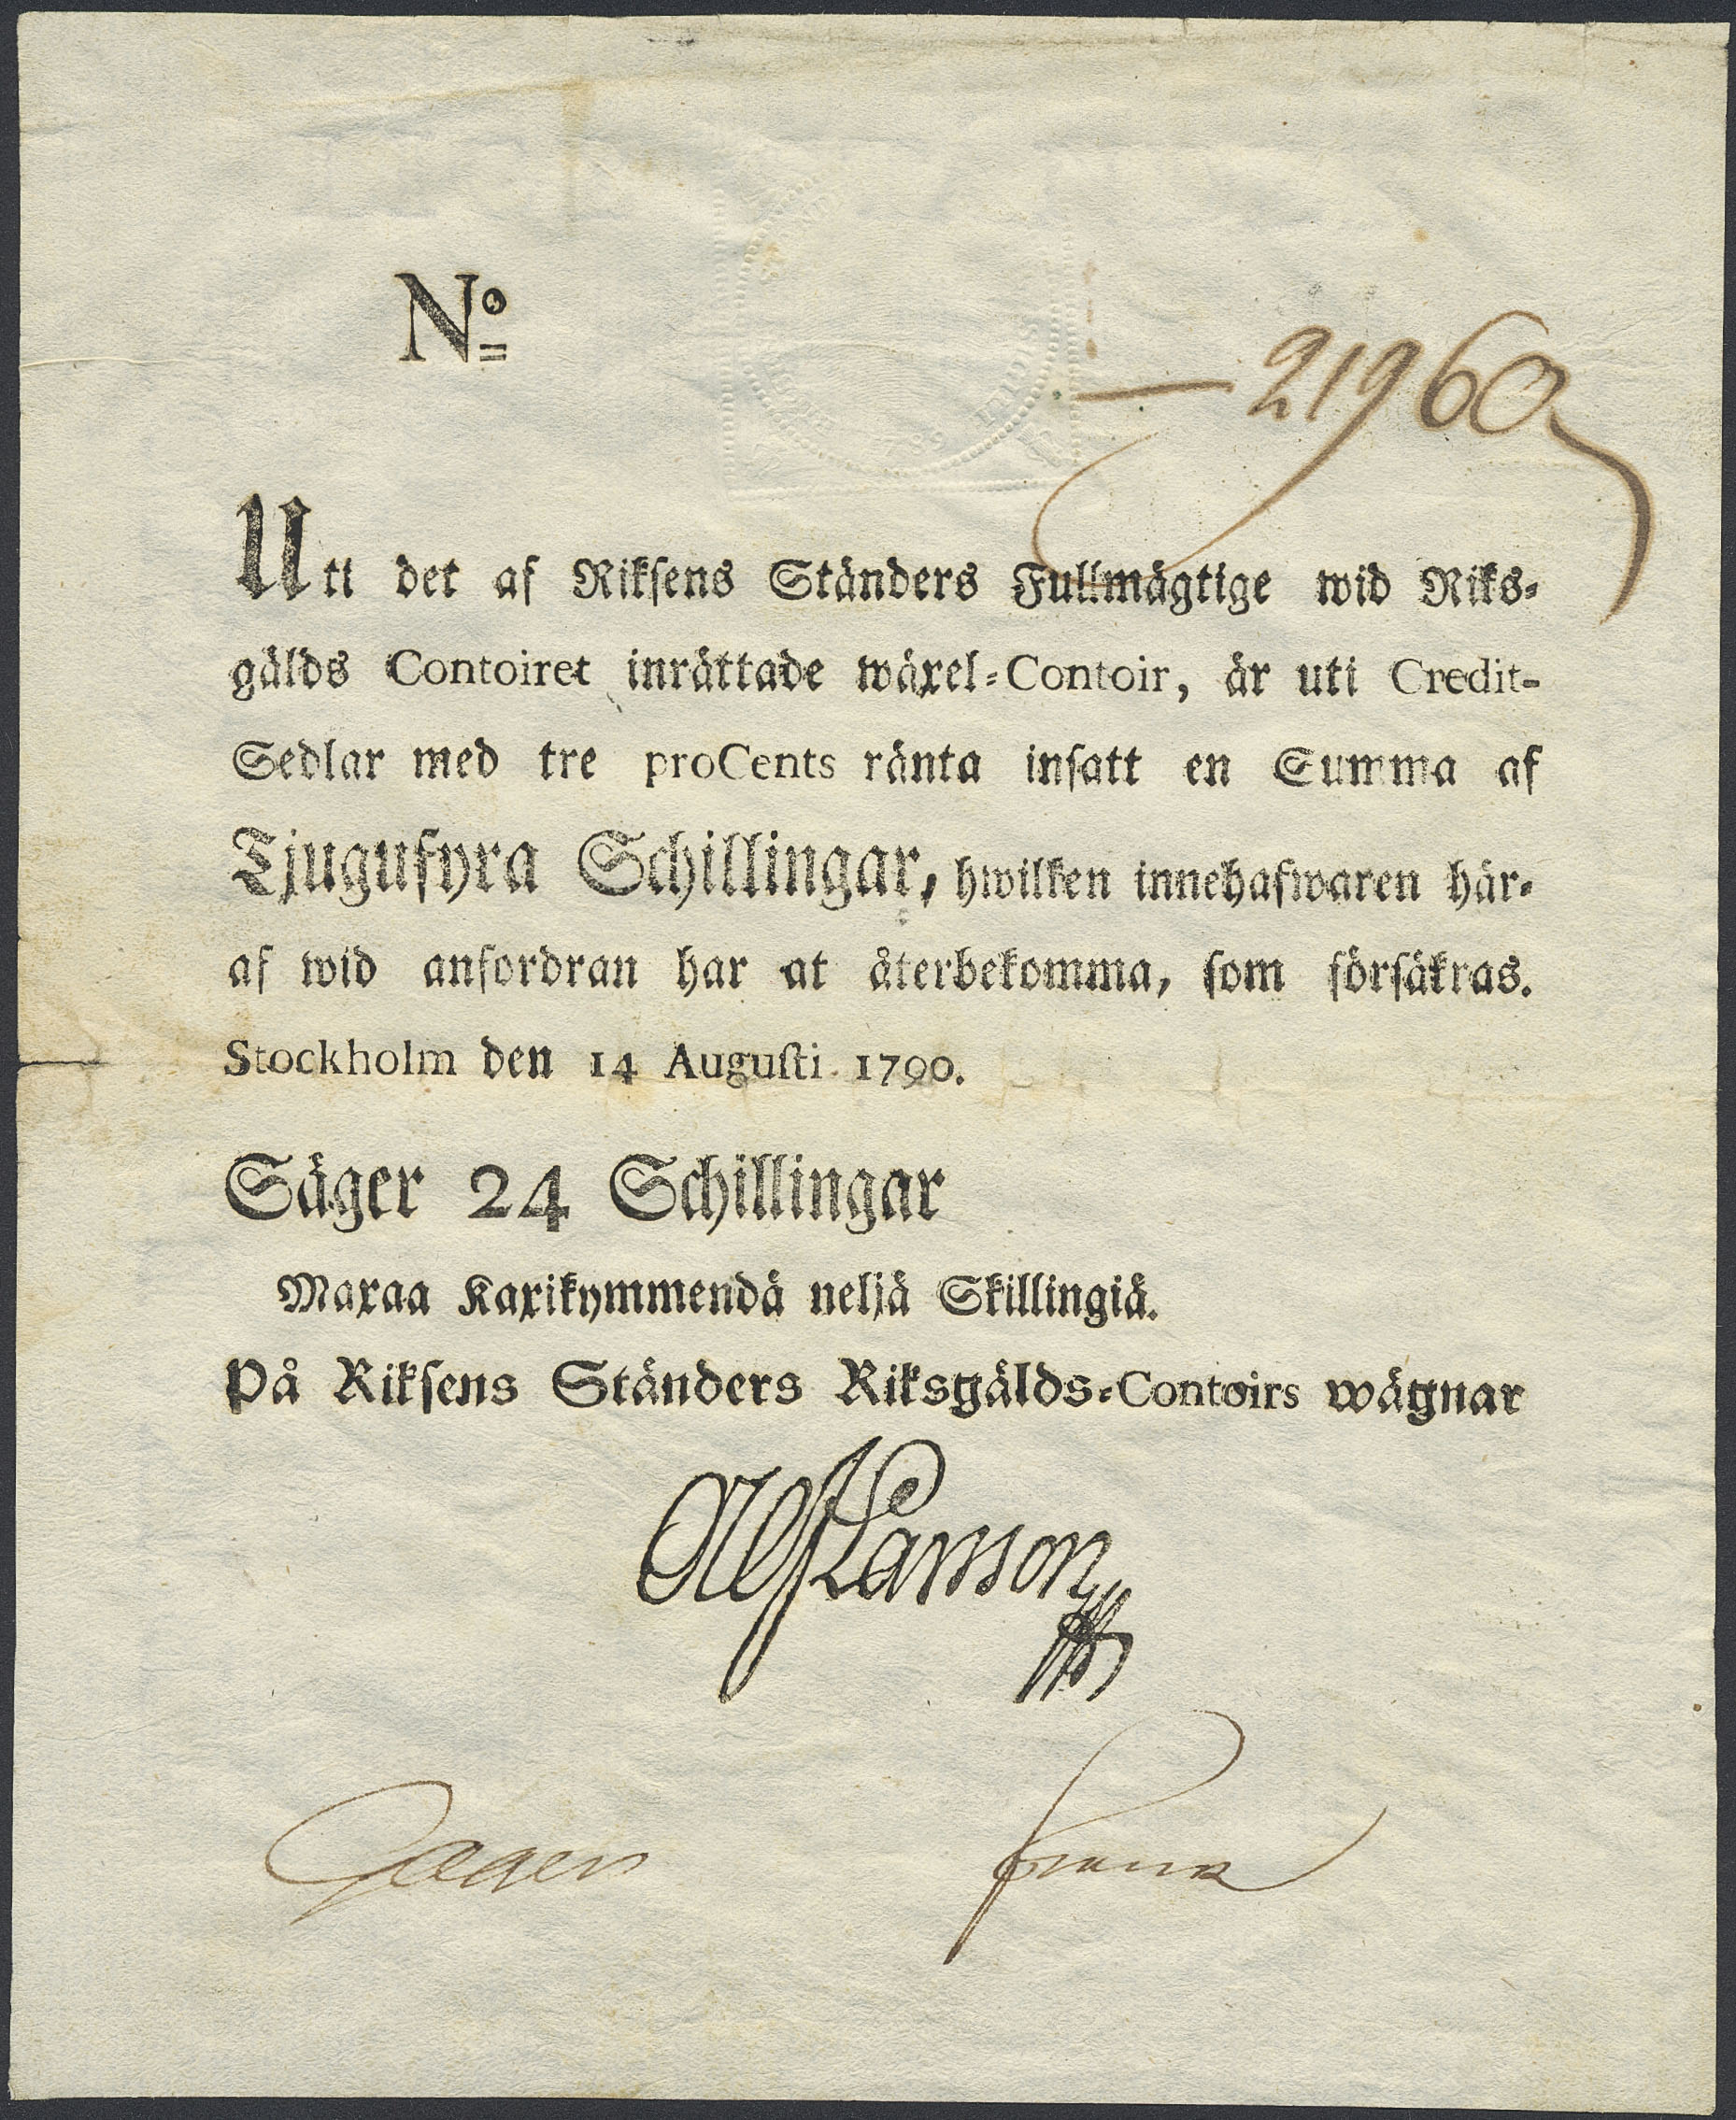 No
— 21960
Uti det af Riksens Ständers Fullmägtige wid Riks-
gälds Contoiret inrättade wäxel-Contoir, är uti Credit-
Sedlar med tre proCents ränta insatt en Summa af
Tjugufyra Schillingar, hwilken innehafwaren här-
af wid anfordran har at återbekomma, som försäkras.
Stockholm den 14 Augusti 1790.
Säger 24 Schillingar
Maxaa Kaxikymmendä neljä Skillingiä.
På Riksens Ständers Riksgälds-Contoirs wägnar